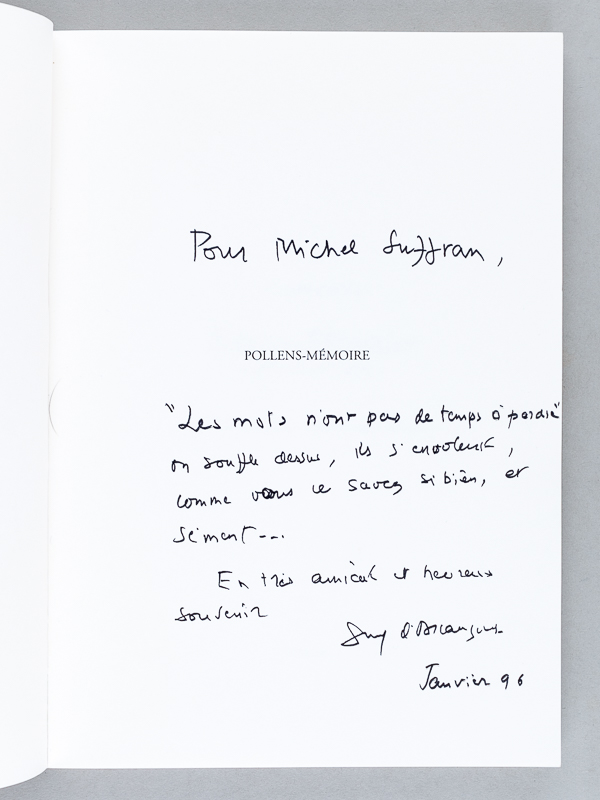 Pour Michel Suffran,
POLLENS-MÉMOIRE
"Les mots n'ont pas de temps à perdre"
on souffle dessus, ils s'envolent,
comme vous le savez si bien, et
sèment---
En très amical et heureux
souvenir
Guy d'Arcangues
Janvier 96